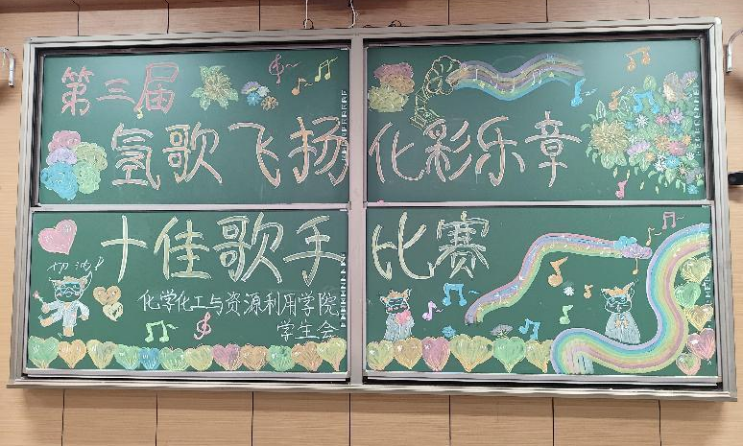 第三届
氢歌飞扬 化彩乐章
十佳歌手 比赛
加油!
化学化工与资源利用学院
学生会